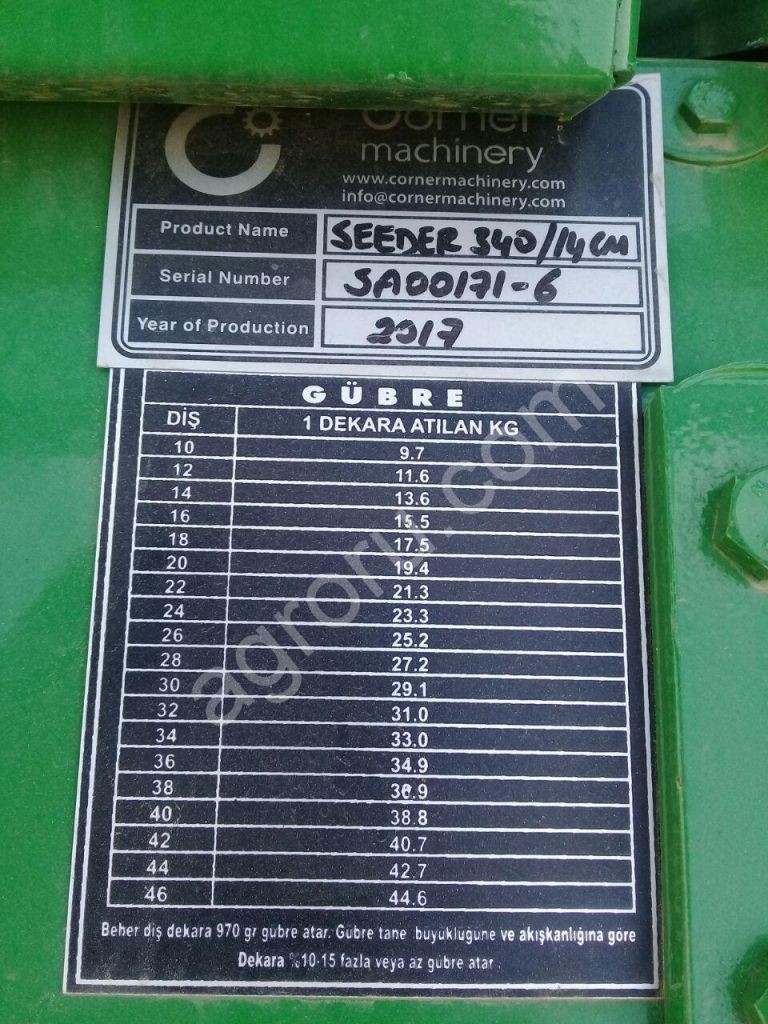 Corner
machinery
www.cornermachinery.com
info@cornermachinery.com
Product Name SEEDER 340/14 cm
Serial Number SA00171-6
Year of Production 2017
GÜBRE
DİŞ 1 DEKARA ATILAN KG
10 9.7
12 11.6
14 13.6
16 15.5
18 17.5
20 19.4
22 21.3
24 23.3
26 25.2
28 27.2
30 29.1
32 31.0
34 33.0
36 34.9
38 36.9
40 38.8
42 40.7
44 42.7
46 44.6
Beher diş dekara 970 gr gübre atar. Gübre tane büyüklüğüne ve akışkanlığına göre
Dekara %10-15 fazla veya az gübre atar.
agroru.com